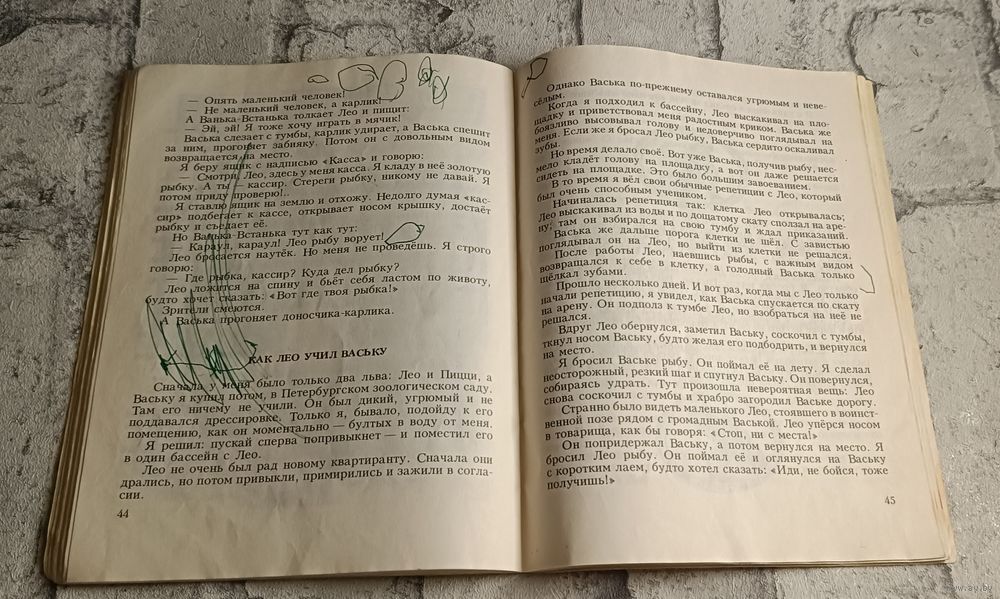 — Опять маленький человек!
— Не маленький человек, а карлик!
А Ванька-Встанька толкает Лео и пищит:
— Эй, эй! Я тоже хочу играть в мячик!
Васька слезает с тумбы, карлик удирает, а Васька спешит
за ним, прогоняет забияку. Потом он с довольным видом
возвращается на место.
Я беру ящик с надписью «Касса» и говорю:
— Смотри, Лео, здесь у меня касса. Я кладу в неё золотую
рыбку. А ты — кассир. Стереги рыбку, никому не давай. Я
потом приду проверю!..
Я ставлю ящик на землю и отхожу. Недолго думая «кас-
сир» подбегает к кассе, открывает носом крышку, достаёт
рыбку и съедает её.
Но Ванька-Встанька тут как тут:
— Караул, караул! Лео рыбу ворует!
Лео бросается наутёк. Но меня не проведёшь. Я строго
говорю:
— Где рыбка, кассир? Куда дел рыбку?
Лео ложится на спину и бьёт себя ластом по животу,
будто хочет сказать: «Вот где твоя рыбка!»
Зрители смеются.
А Васька прогоняет доносчика-карлика.
КАК ЛЕО УЧИЛ ВАСЬКУ
Сначала у меня было только два льва: Лео и Пицци, а
Ваську я купил потом, в Петербургском зоологическом саду.
Там его ничему не учили. Он был дикий, угрюмый и не
поддавался дрессировке. Только я, бывало, подойду к его
помещению, как он моментально — бултых в воду от меня.
Я решил: пускай сперва попривыкнет — и поместил его
в один бассейн с Лео.
Лео не очень был рад новому квартиранту. Сначала они
дрались, но потом привыкли, примирились и зажили в согла-
сии.
44
Однако Васька по-прежнему оставался угрюмым и неве-
сёлым.
Когда я подходил к бассейну, Лео выскакивал на пло-
щадку и приветствовал меня радостным криком. Васька же
боязливо высовывал голову и недоверчиво поглядывал на
меня. Если же я бросал Лео рыбку, Васька сердито оскаливал
зубы.
Но время делало своё. Вот уже Васька, получив рыбу, нес-
мело кладёт голову на площадку, а вот он даже решается
сидеть на площадке. Это было большим завоеванием.
В то время я вёл свои обычные репетиции с Лео, который
был очень способным учеником.
Начиналась репетиция так: клетка Лео открывалась;
Лео выскакивал из воды и по дощатому скату сползал на аре-
ну; там он взбирался на свою тумбу и ждал приказаний.
Васька же дальше порога клетки не шёл. С завистью
поглядывал он на Лео, но выйти из клетки не решался.
После работы Лео, наевшись рыбы, с важным видом
возвращался к себе в клетку, а голодный Васька только
щёлкал зубами.
Прошло несколько дней. И вот раз, когда мы с Лео только
начали репетицию, я увидел, как Васька спускается по скату
на арену. Он подполз к тумбе Лео, но взобраться на неё не
решался.
Вдруг Лео обернулся, заметил Ваську, соскочил с тумбы,
ткнул носом Ваську, будто желая его подбодрить, и вернулся
на место.
Я бросил Ваське рыбу. Он поймал её на лету. Я сделал
неосторожный, резкий шаг и спугнул Ваську. Он повернулся,
собираясь удрать. Тут произошла невероятная вещь: Лео
снова соскочил с тумбы и храбро загородил Ваське дорогу.
Странно было видеть маленького Лео, стоявшего в воинст-
венной позе рядом с громадным Васькой. Лео упёрся носом
в товарища, как бы говоря: «Стоп, ни с места!»
Он попридержал Ваську, а потом вернулся на место. Я
бросил Лео рыбу. Он поймал её и оглянулся на Ваську
с коротким лаем, будто хотел сказать: «Иди, не бойся, тоже
получишь!»
45
www.ay.by